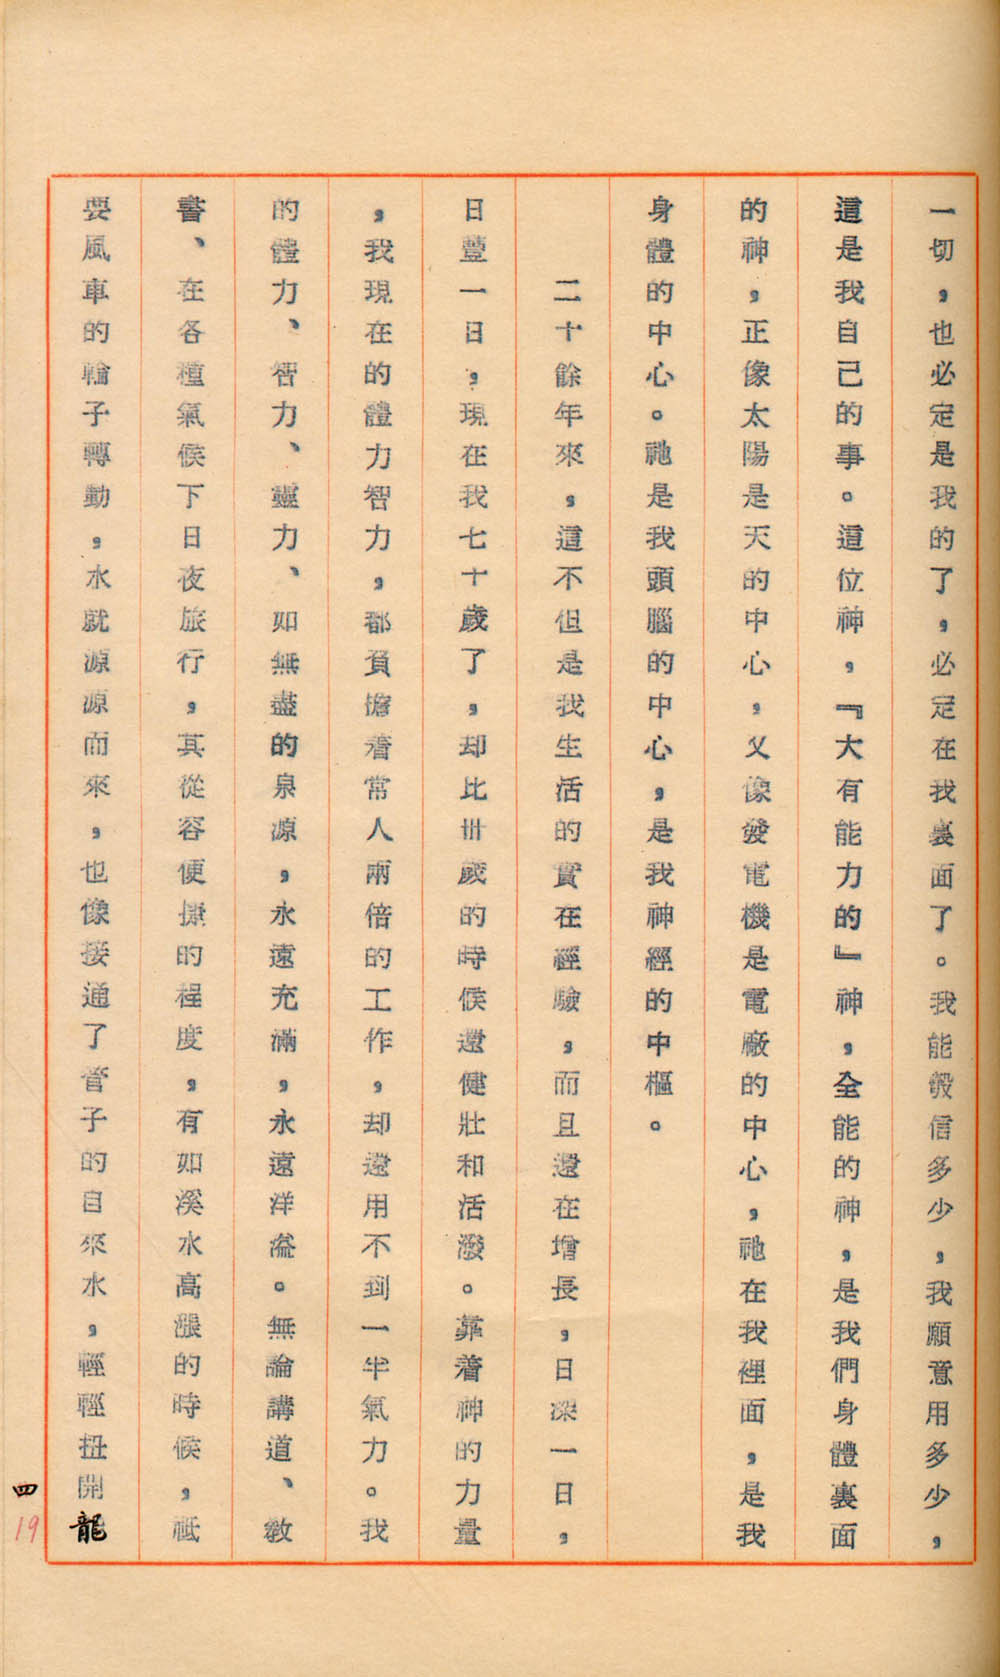 一切，也必定是我的了，必定在我裏面了。我能彀信多少，我願意用多少，
這是我自己的事。這位神，『大有能力的』神，全能的神，是我們身體裏面
的神，正像太陽是天的中心，又像發電機是電廠的中心，祂在我裡面，是我
身體的中心。祂是我頭腦的中心，是我神經的中樞。
二十餘年來，這不但是我生活的實在經驗，而且還在增長，日深一日，
日豐一日，現在我七十歲了，却比卅歲的時候還健壯和活潑。靠着神的力量
，我現在的體力智力，都負擔着常人兩倍的工作，却還用不到一半氣力。我
的體力、智力、靈力、如無盡的泉源，永遠充滿，永遠洋溢。無論講道、教
書、在各種氣候下日夜旅行，其從容便捷的程度，有如溪水高漲的時候，祗
要風車的輪子轉動，水就源源而來，也像接通了管子的自來水，輕輕扭開龍
四
19